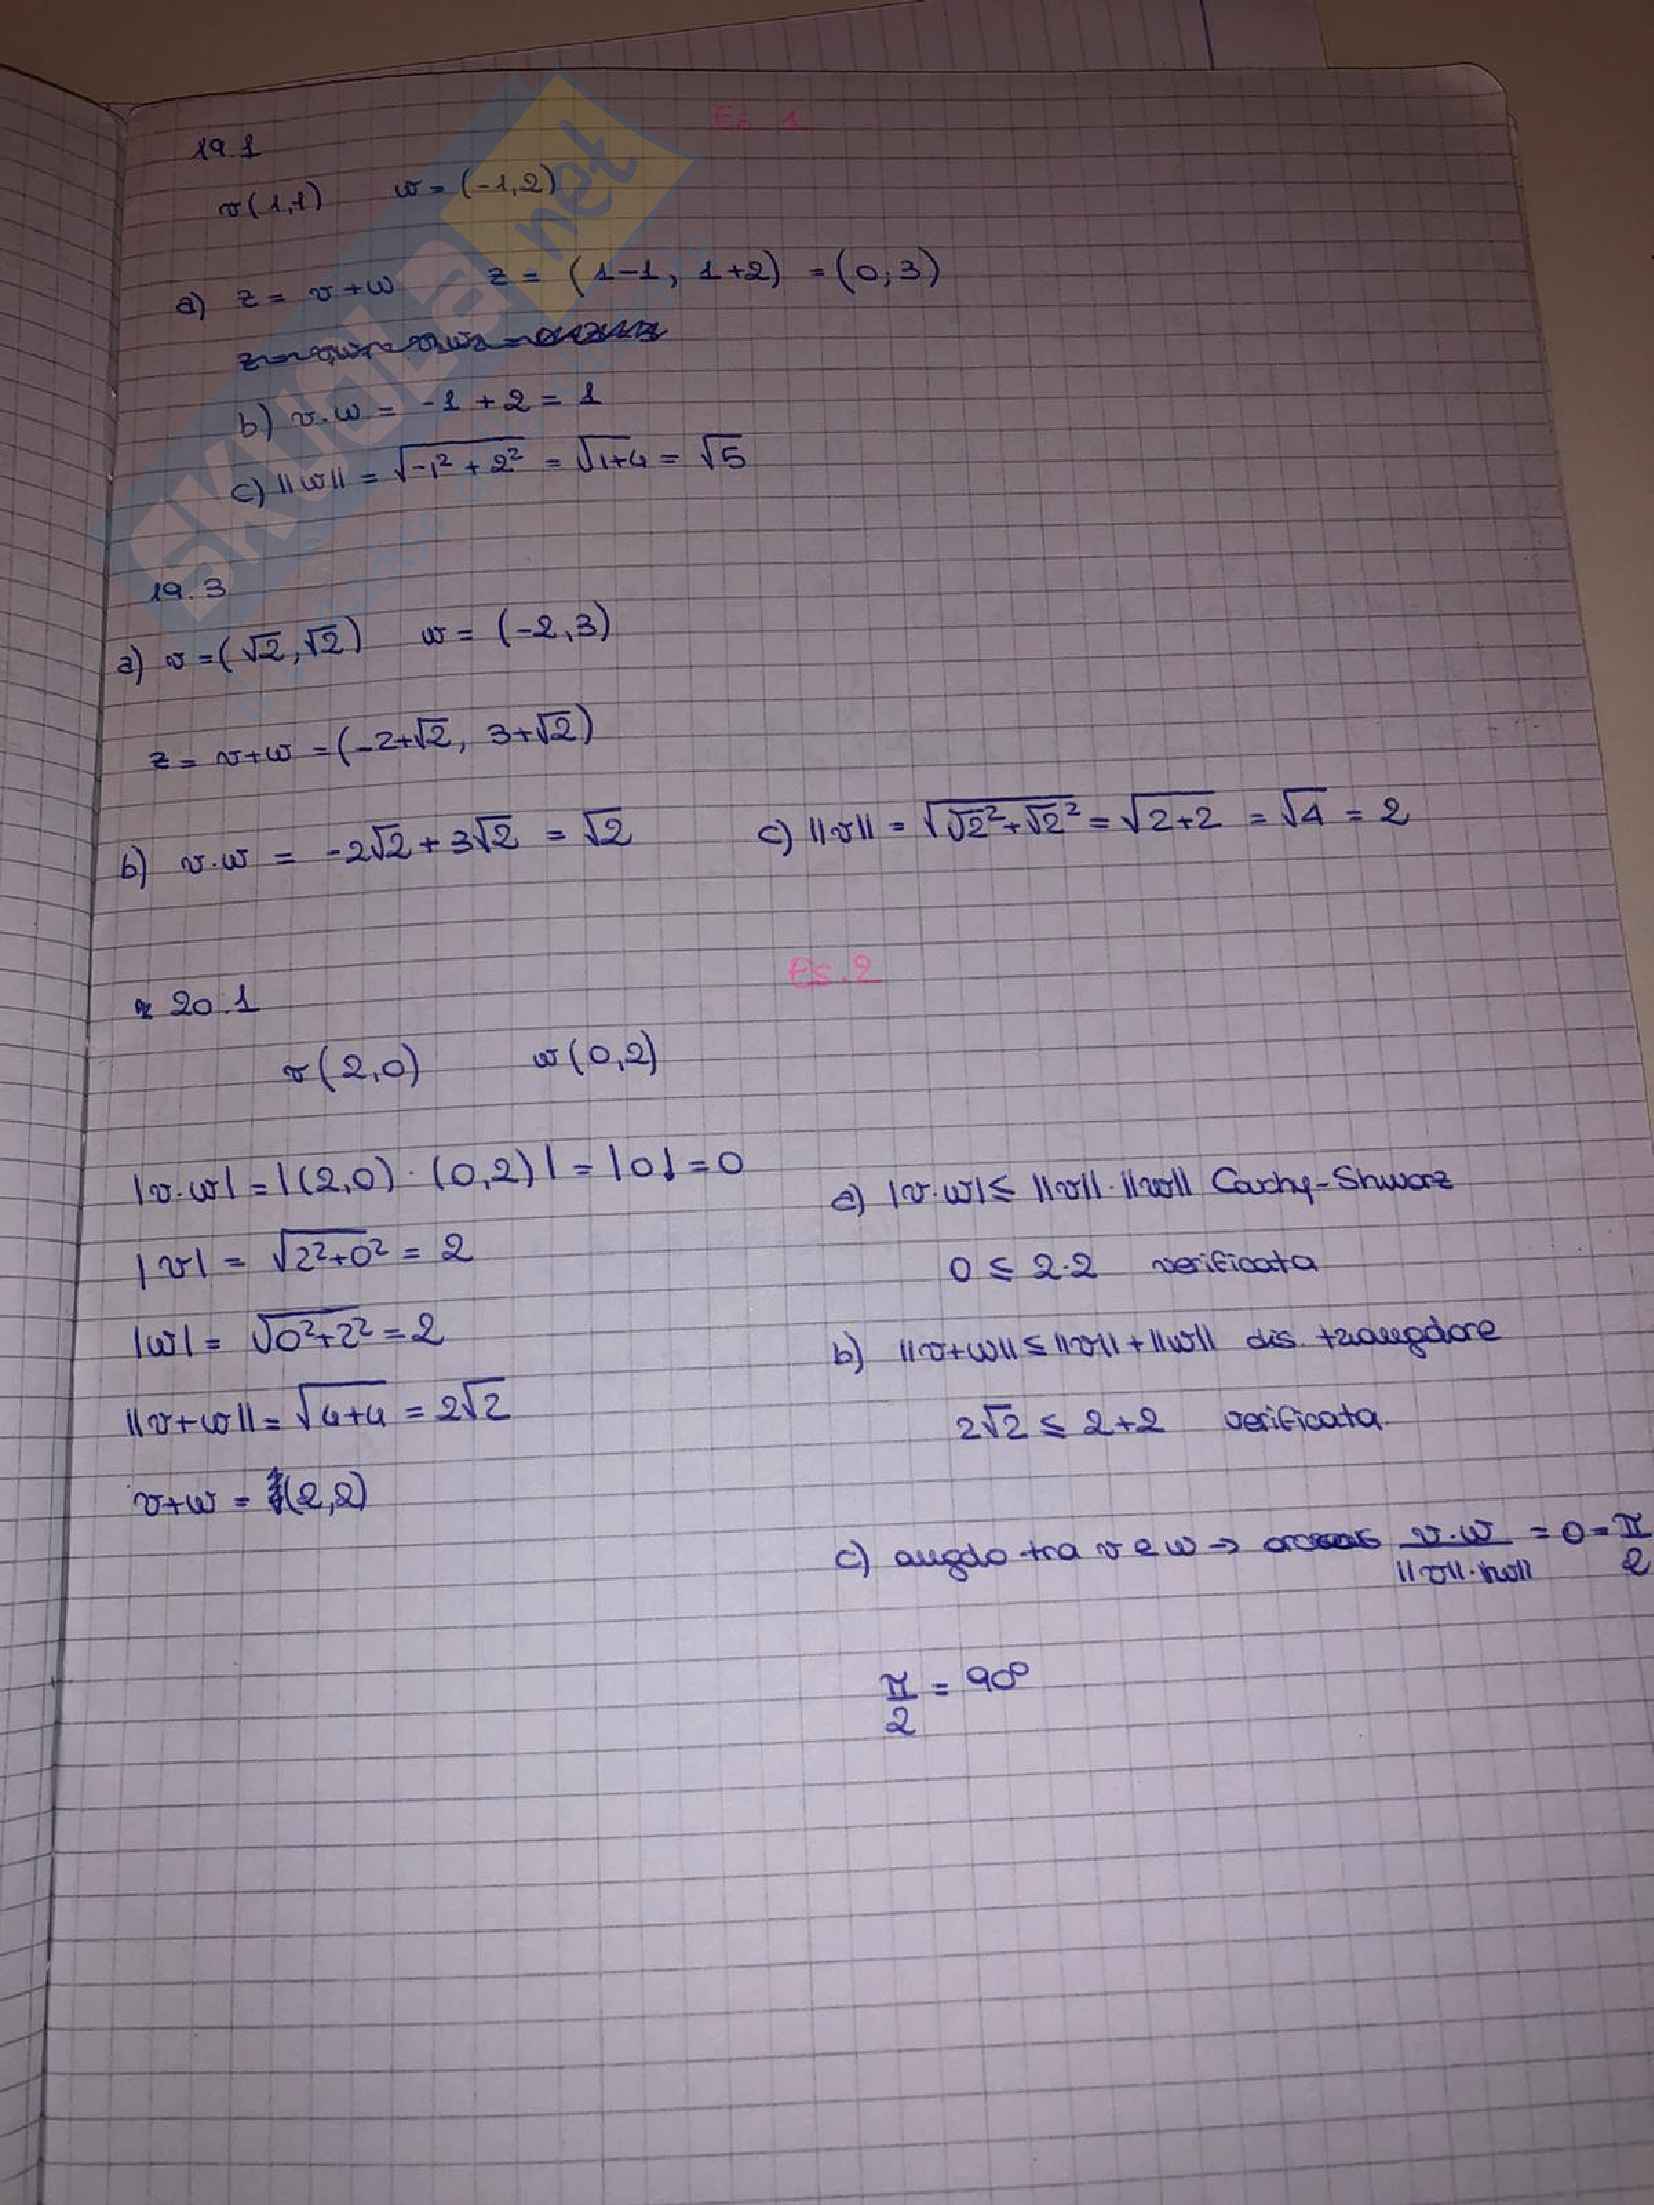 Es. 1
19.1
v(1,1) w = (-1,2)
a) z = v+w z = (1-1, 1+2) = (0,3)
b) v·w = -1 + 2 = 1
c) ||w|| = √-1² + 2² = √1+4 = √5
19.3
a) v = (√2, √2) w = (-2,3)
z = v+w = (-2+√2, 3+√2)
b) v·w = -2√2 + 3√2 = √2 c) ||v|| = √√2²+√2² = √2+2 = √4 = 2
Es. 2
20.1
v(2,0) w(0,2)
|v·w| = |(2,0)·(0,2)| = |0| = 0
|v| = √2²+0² = 2
|w| = √0²+2² = 2
||v+w|| = √4+4 = 2√2
v+w = (2,2)
a) |v·w| ≤ ||v||·||w|| Cauchy-Shwarz
0 ≤ 2·2 verificata
b) ||v+w|| ≤ ||v||+||w|| dis. triangolare
2√2 ≤ 2+2 verificata.
c) angolo tra v e w → arccos v·w/||v||·||w|| = 0 = π/2
π/2 = 90°
SKUOLA.net